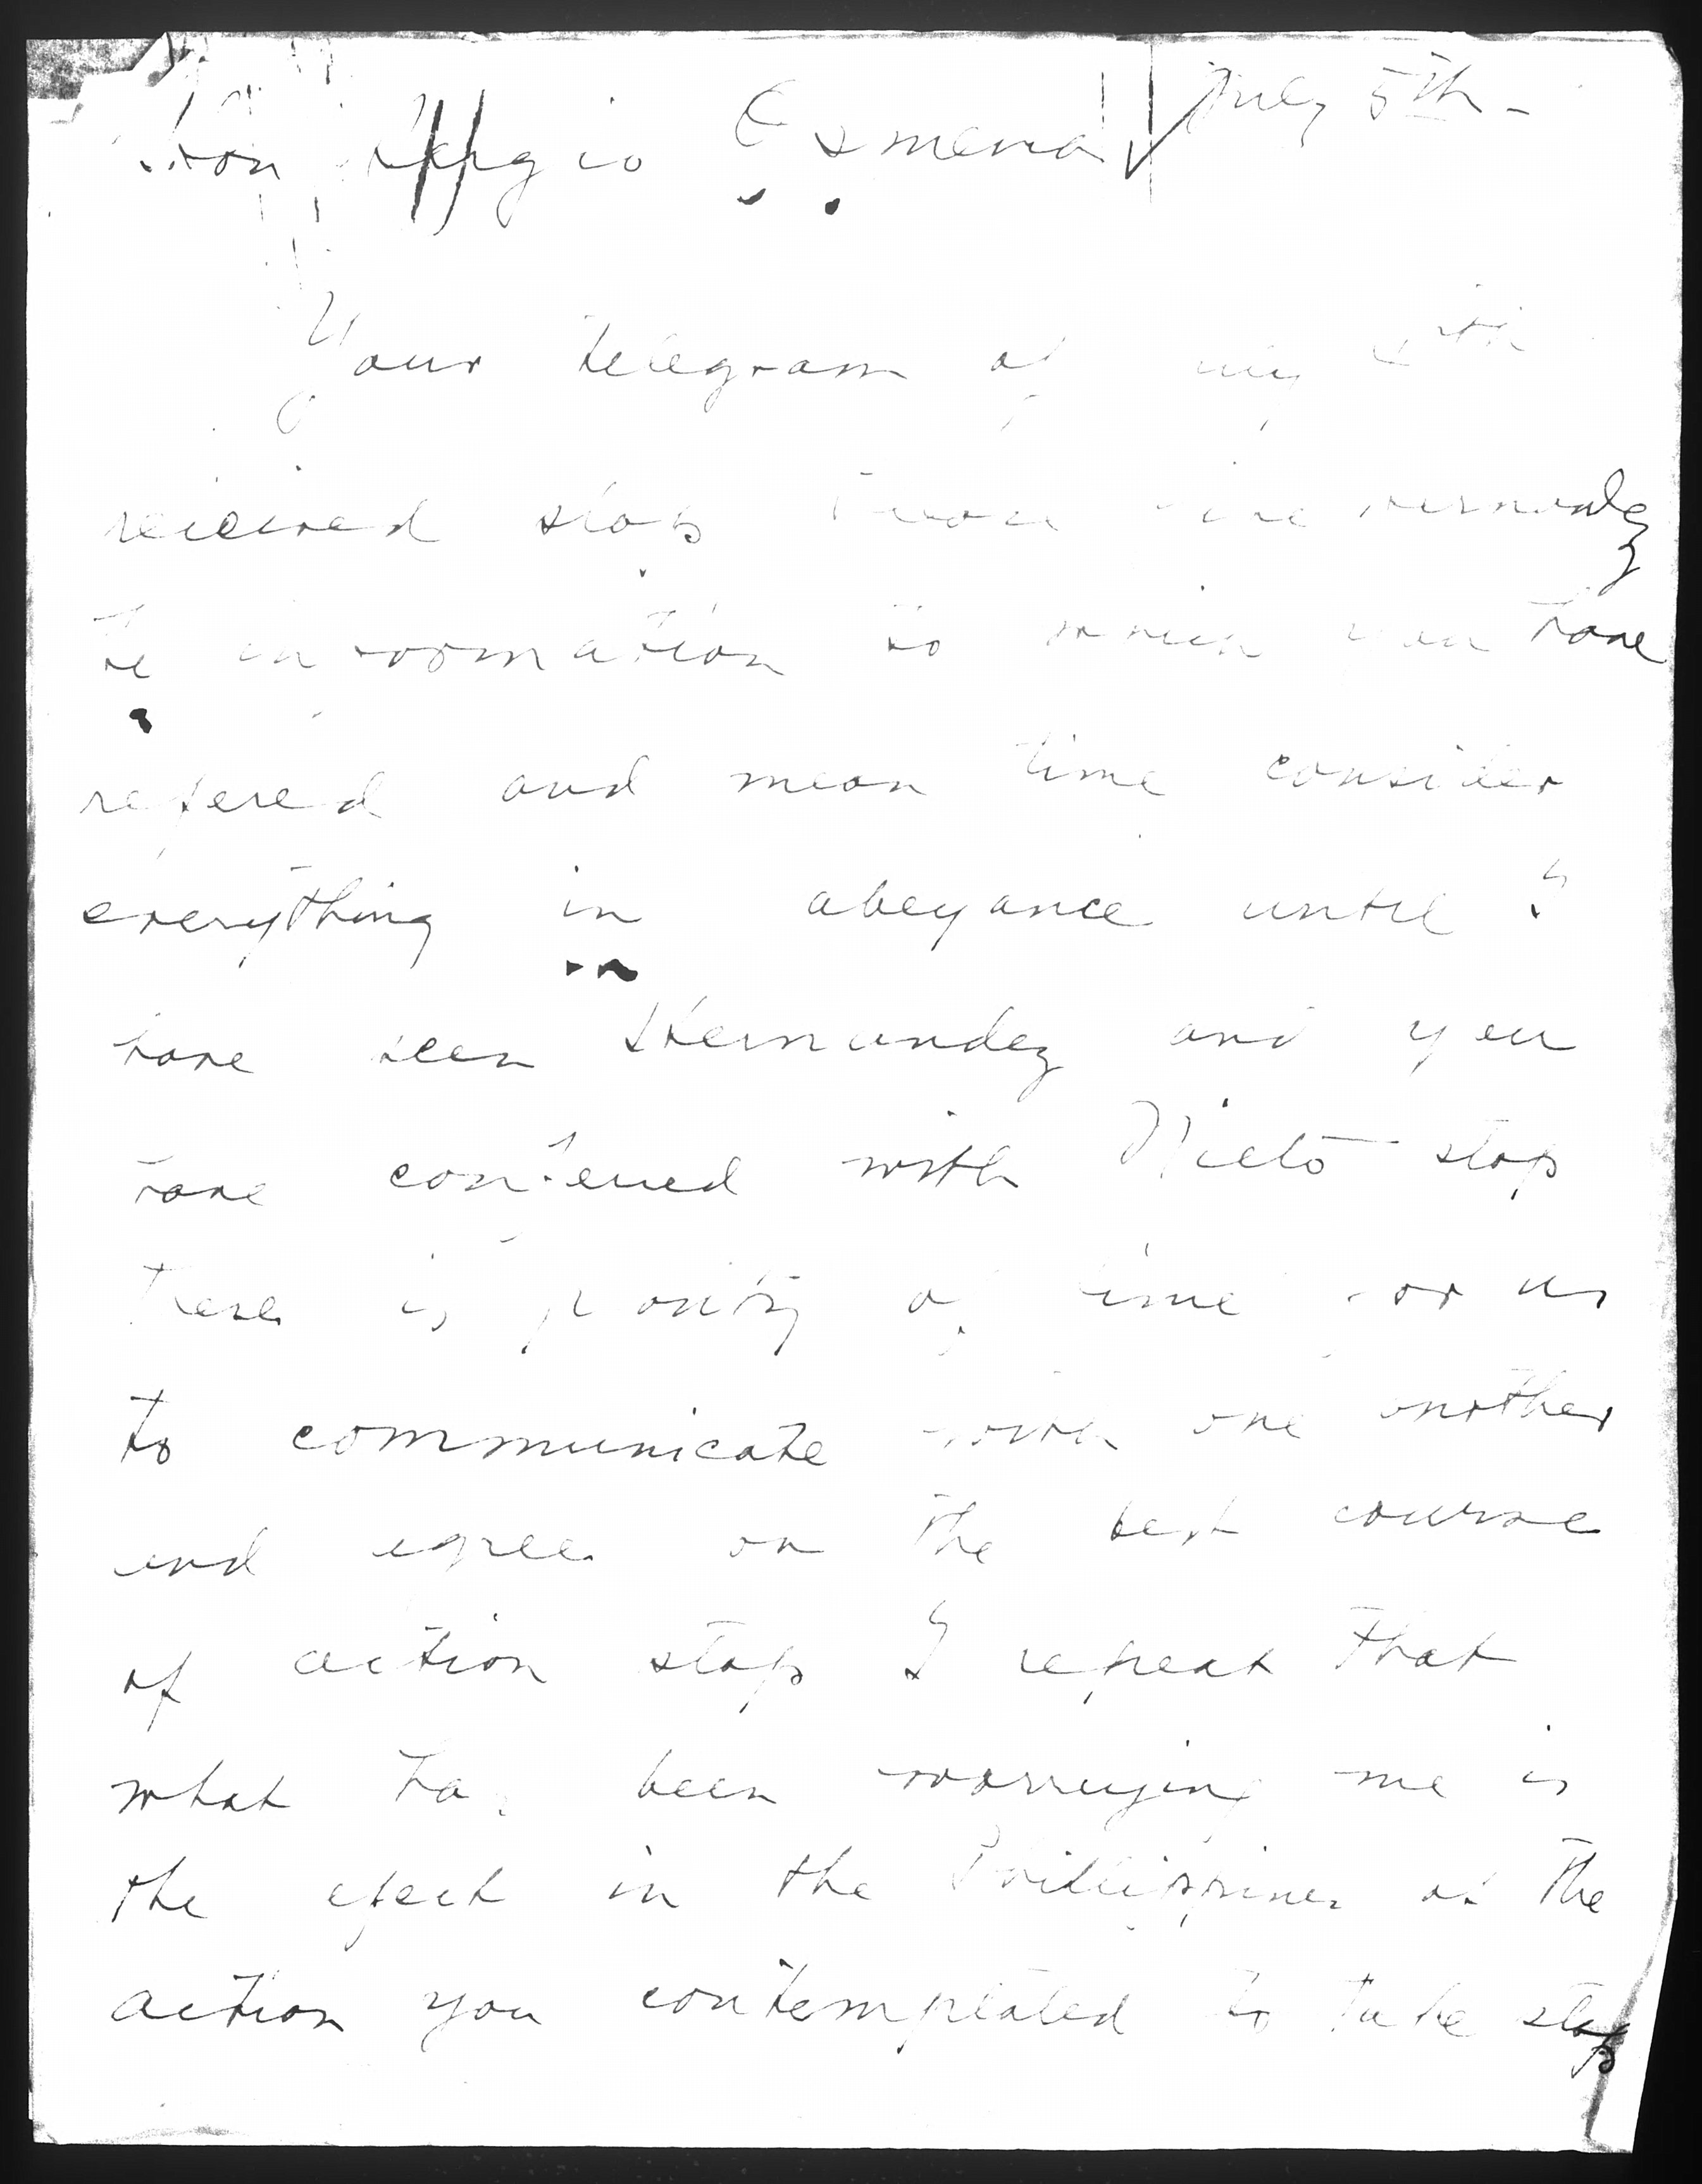 July 5th -
Hon Sergio Esmena
Your telegram of July 4th
received stop Hernandez
te information to which you have
refered and mean time consider
everything in abeyance until I
have seen Hernandez and you
have confered with Nieto stop
There is plenty of time for us
to communicate with one another
and agree on the best course
of action stop I repeat that
what has been worrying me is
the efect in the Phillippines of the
action you contemplated to take stop